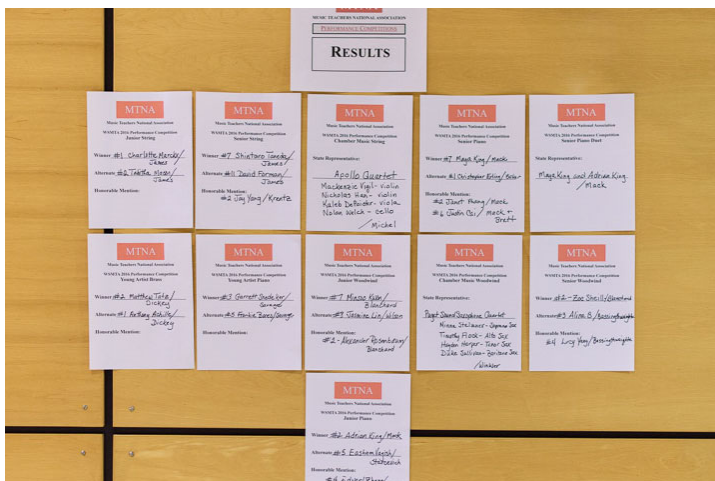 MUSIC TEACHERS NATIONAL ASSOCIATION
PERFORMANCE COMPETITIONS
RESULTS
MTNA
Music Teachers National Association
WSMTA 2016 Performance Competition
Junior String
Winner #1 Charlotte /
James
Alternate /
James
Honorable Mention:
MTNA
Music Teachers National Association
WSMTA 2016 Performance Competition
Senior String
Winner #7 Shintaro /
James
Alternate #11 David Forman/
James
Honorable Mention:
#2 Jay Yang/Krentz
MTNA
Music Teachers National Association
WSMTA 2016 Performance Competition
Chamber Music String
State Representative:
Apollo Quartet
Mackenzie Vigil - violin
Nicholas Han - violin
Kaleb - viola
Nolan Welch - cello
/Michel
MTNA
Music Teachers National Association
WSMTA 2016 Performance Competition
Senior Piano
Winner Maya King/Mack
Alternate #1 Christopher /
Honorable Mention:
#2 Janet Phang/Mack
#6 Justin /Mack +
Brett
MTNA
Music Teachers National Association
WSMTA 2016 Performance Competition
Senior Piano Duet
Maya King and Adrian King
/Mack
MTNA
Music Teachers National Association
WSMTA 2016 Performance Competition
Young Artist Brass
Winner #2 Matthew /
Dickey
Alternate #1 Anthony /
Dickey
Honorable Mention:
MTNA
Music Teachers National Association
WSMTA 2016 Performance Competition
Young Artist Piano
Winner #3 Garrett /
Savage
Alternate /Savage
Honorable Mention:
MTNA
Music Teachers National Association
WSMTA 2016 Performance Competition
Junior Woodwind
Winner #7 /
Blanchard
Alternate Jasmine Lin/Wilson
Honorable Mention:
#2 - Alexander Rosenbaum/
Blanchard
MTNA
Music Teachers National Association
WSMTA 2016 Performance Competition
Chamber Music Woodwind
State Representative:
Puget Sound Saxophone Quartet
- Soprano Sax
Timothy Flock - Alto Sax
Hayden Harper - Tenor Sax
Duke Sullivan - Baritone Sax
/Winkler
MTNA
Music Teachers National Association
WSMTA 2016 Performance Competition
Senior Woodwind
Winner #2 - Zoe /Blanchard
Alternate #3 Alina B./Bassingthwaighte
Honorable Mention:
#4 Lucy Yang/Bassingthwaighte
MTNA
Music Teachers National Association
WSMTA 2016 Performance Competition
Junior Piano
Winner #2 Adrian King/Mack
Alternate #5 /
Honorable Mention: